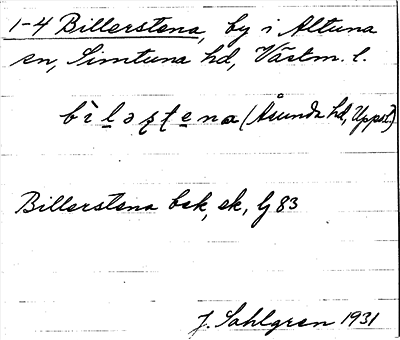 1-4 Billerstena, by i Altuna
sn, Simtuna hd, Västm. l.
(Åsunda hd, Upps.l.)
Billerstena bsk, ek, lj 83
J. Sahlgren 1931